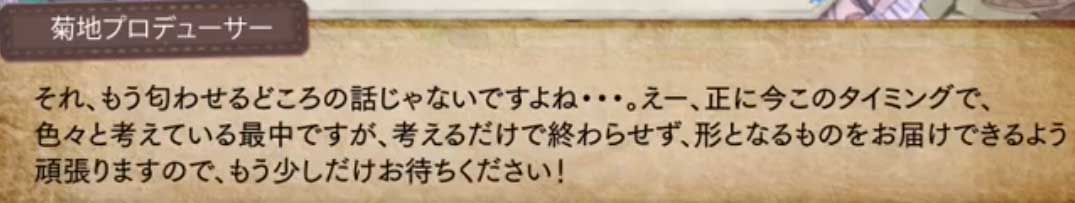 菊地プロデューサー
それ、もう匂わせるどころの話じゃないですよね・・・。えー、正に今このタイミングで、
色々と考えている最中ですが、考えるだけで終わらせず、形となるものをお届けできるよう
頑張りますので、もう少しだけお待ちください！